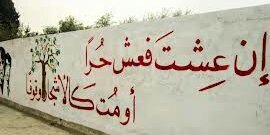 إن عِشتَ فعش حُراً
أو مُت كالأشجار وقوفاً